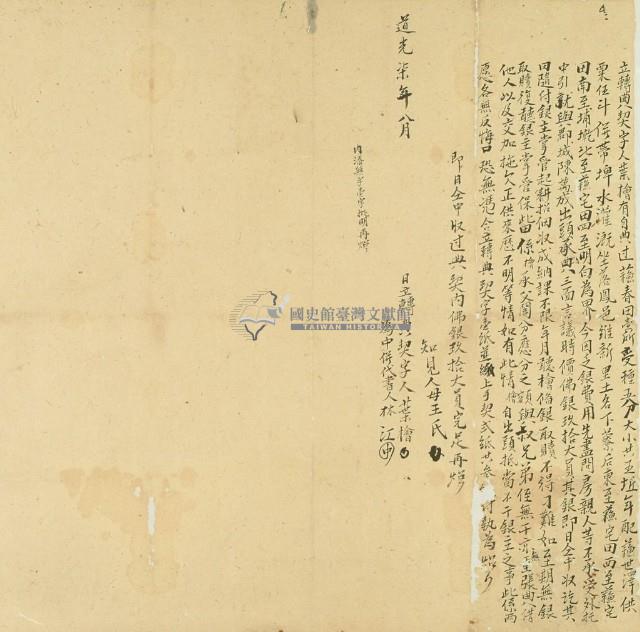 立轉典契字人葉檜有自典過蘇春田壹所受種五分大小廿五坵年配蘇世澤供
粟伍斗併帶埤水灌溉坐落鳳邑維新里土名下藔后東至蘇宅田西至蘇宅
田南至埔墘北至蘇宅田四至明白為界今因乏銀費用先盡問房親人等不承受外托
中引就與郡城陳萬成出頭承典三面言議時價佛銀玖拾大員其銀即日仝中收訖其
田隨付銀主掌管起耕招佃收成納課不限年月聽檜備銀取贖不得刁難如至期無銀
取贖復聽銀主掌管保此田係檜承父鬮分應分之額與叔兄弟侄無干亦無重張典借
他人以及交加拖欠正供來歷不明等情如有此情檜自出頭抵當不干銀主之事此係兩
愿各無反悔口恐無憑合立轉典契字壹紙並繳上手契弍紙共叁紙付執為炤
即日仝中收过典契內佛銀玖拾大員完足再炤
知見人母王氏
日立轉典契字人葉檜
為中併代書人林江
內添無字壹字批明再炤
道光柒年八月
國史館臺灣文獻館
TAIWAN HISTORICA